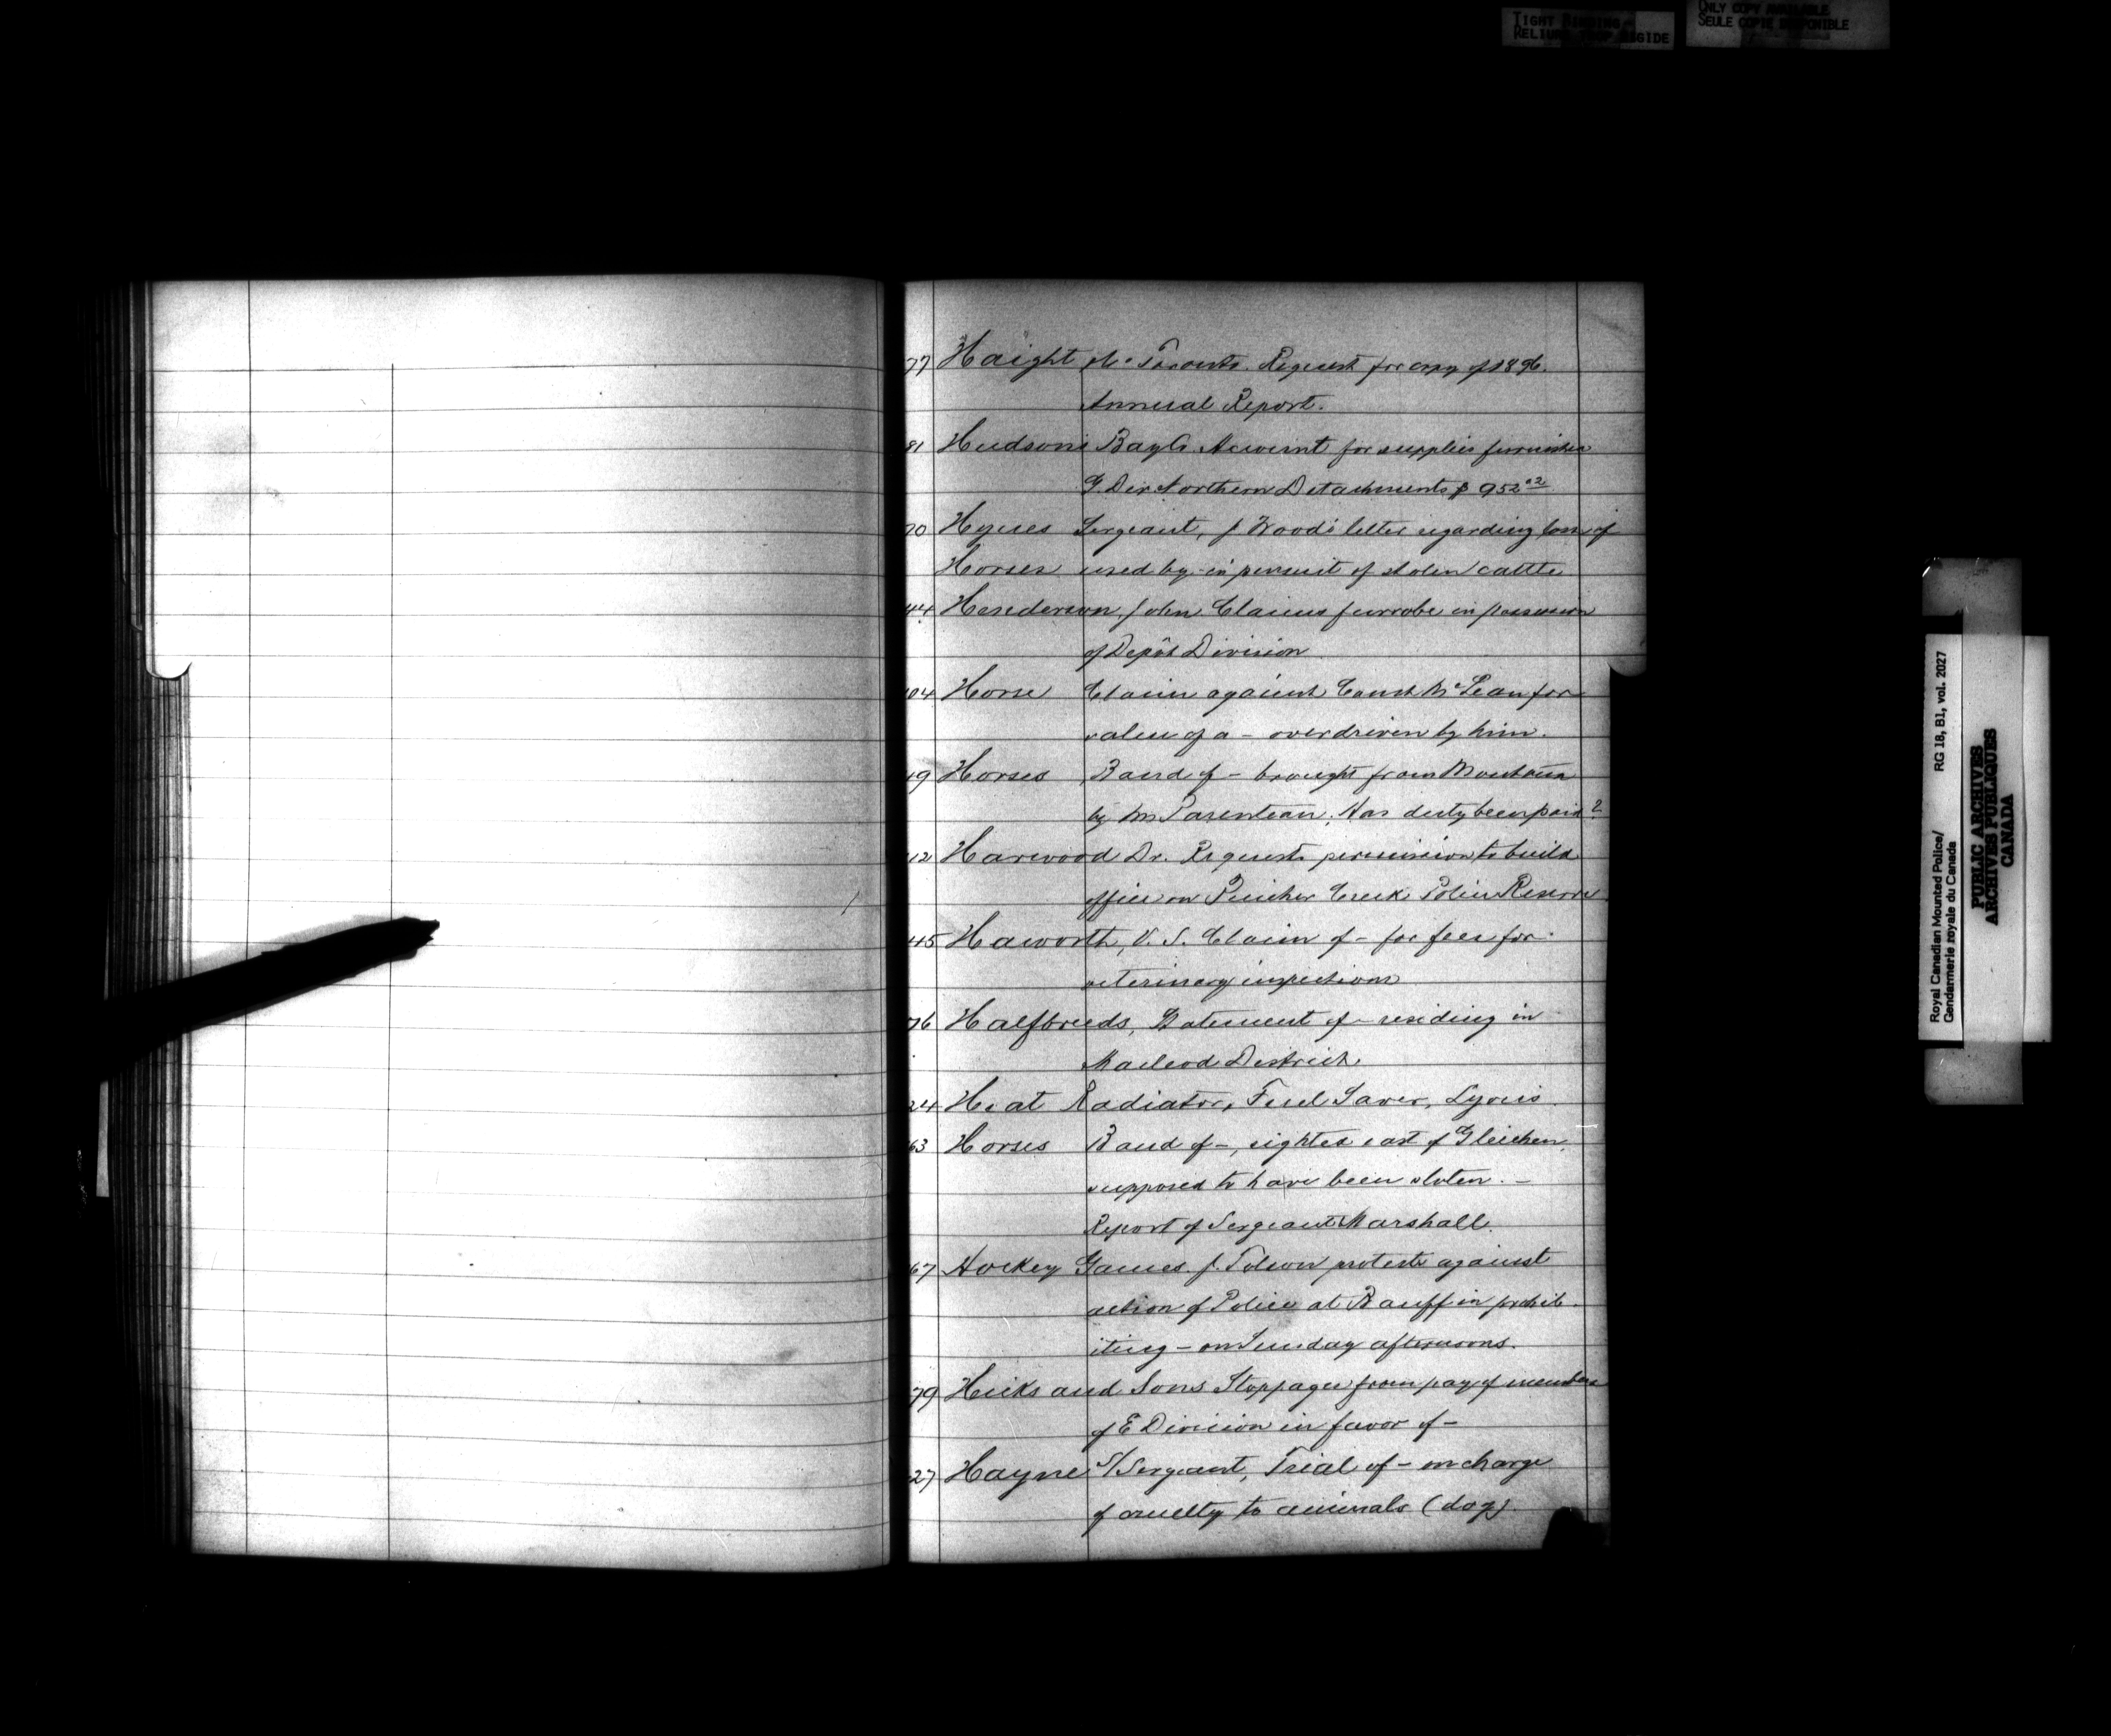 TIGHT BINDING-
RELIURE TROP RIGIDE
ONLY COPY AVAILABLE
SEULE COPIE DISPONIBLE
77 Haight Toronto. Request for copy of 1896.
Annual Report.
81 Hudson's Bay Co. Account for supplies furnished
G. Div. Northern Detachments $ 952
70 Hynes Sergeant, J Wood's letter regarding loss of
Horses used by - in pursuit of stolen cattle
44 Henderson, John Claims fur robe in possession
of Depôt Division
04 Horse Claim against Const McLean for
value of a - overdriven by him.
19 Horses Band of - brought from Montana
by Mr Parenteau. Has duty been paid?
12 Harwood Dr. Requests permission to build
office on Pincher Creek Police Reserve
45 Haworth, V. S. Claim of - for fees for
veterinary inspections
76 Halfbreeds, Statement of - residing in
Macleod District
24 Heat Radiator, Fuel Saver, Lyons.
63 Horses Band of -, sighted east of Gleichen,
supposed to have been stolen. -
Report of Sergeant Marshall.
67 Hockey Games. J. protests against
action of Police at Banff in prohib-
iting - on Sunday afternoons.
79 Hicks and Sons Stoppages from pay of members
of E Division in favor of -
27 Hayne S/Sergeant, Trial of - on charge
of cruelty to animals (dog).
Royal Canadian Mounted Police/
Gendarmerie royale du Canada
RG 18, B1, vol. 2027
PUBLIC ARCHIVES
ARCHIVES PUBLIQUES
CANADA